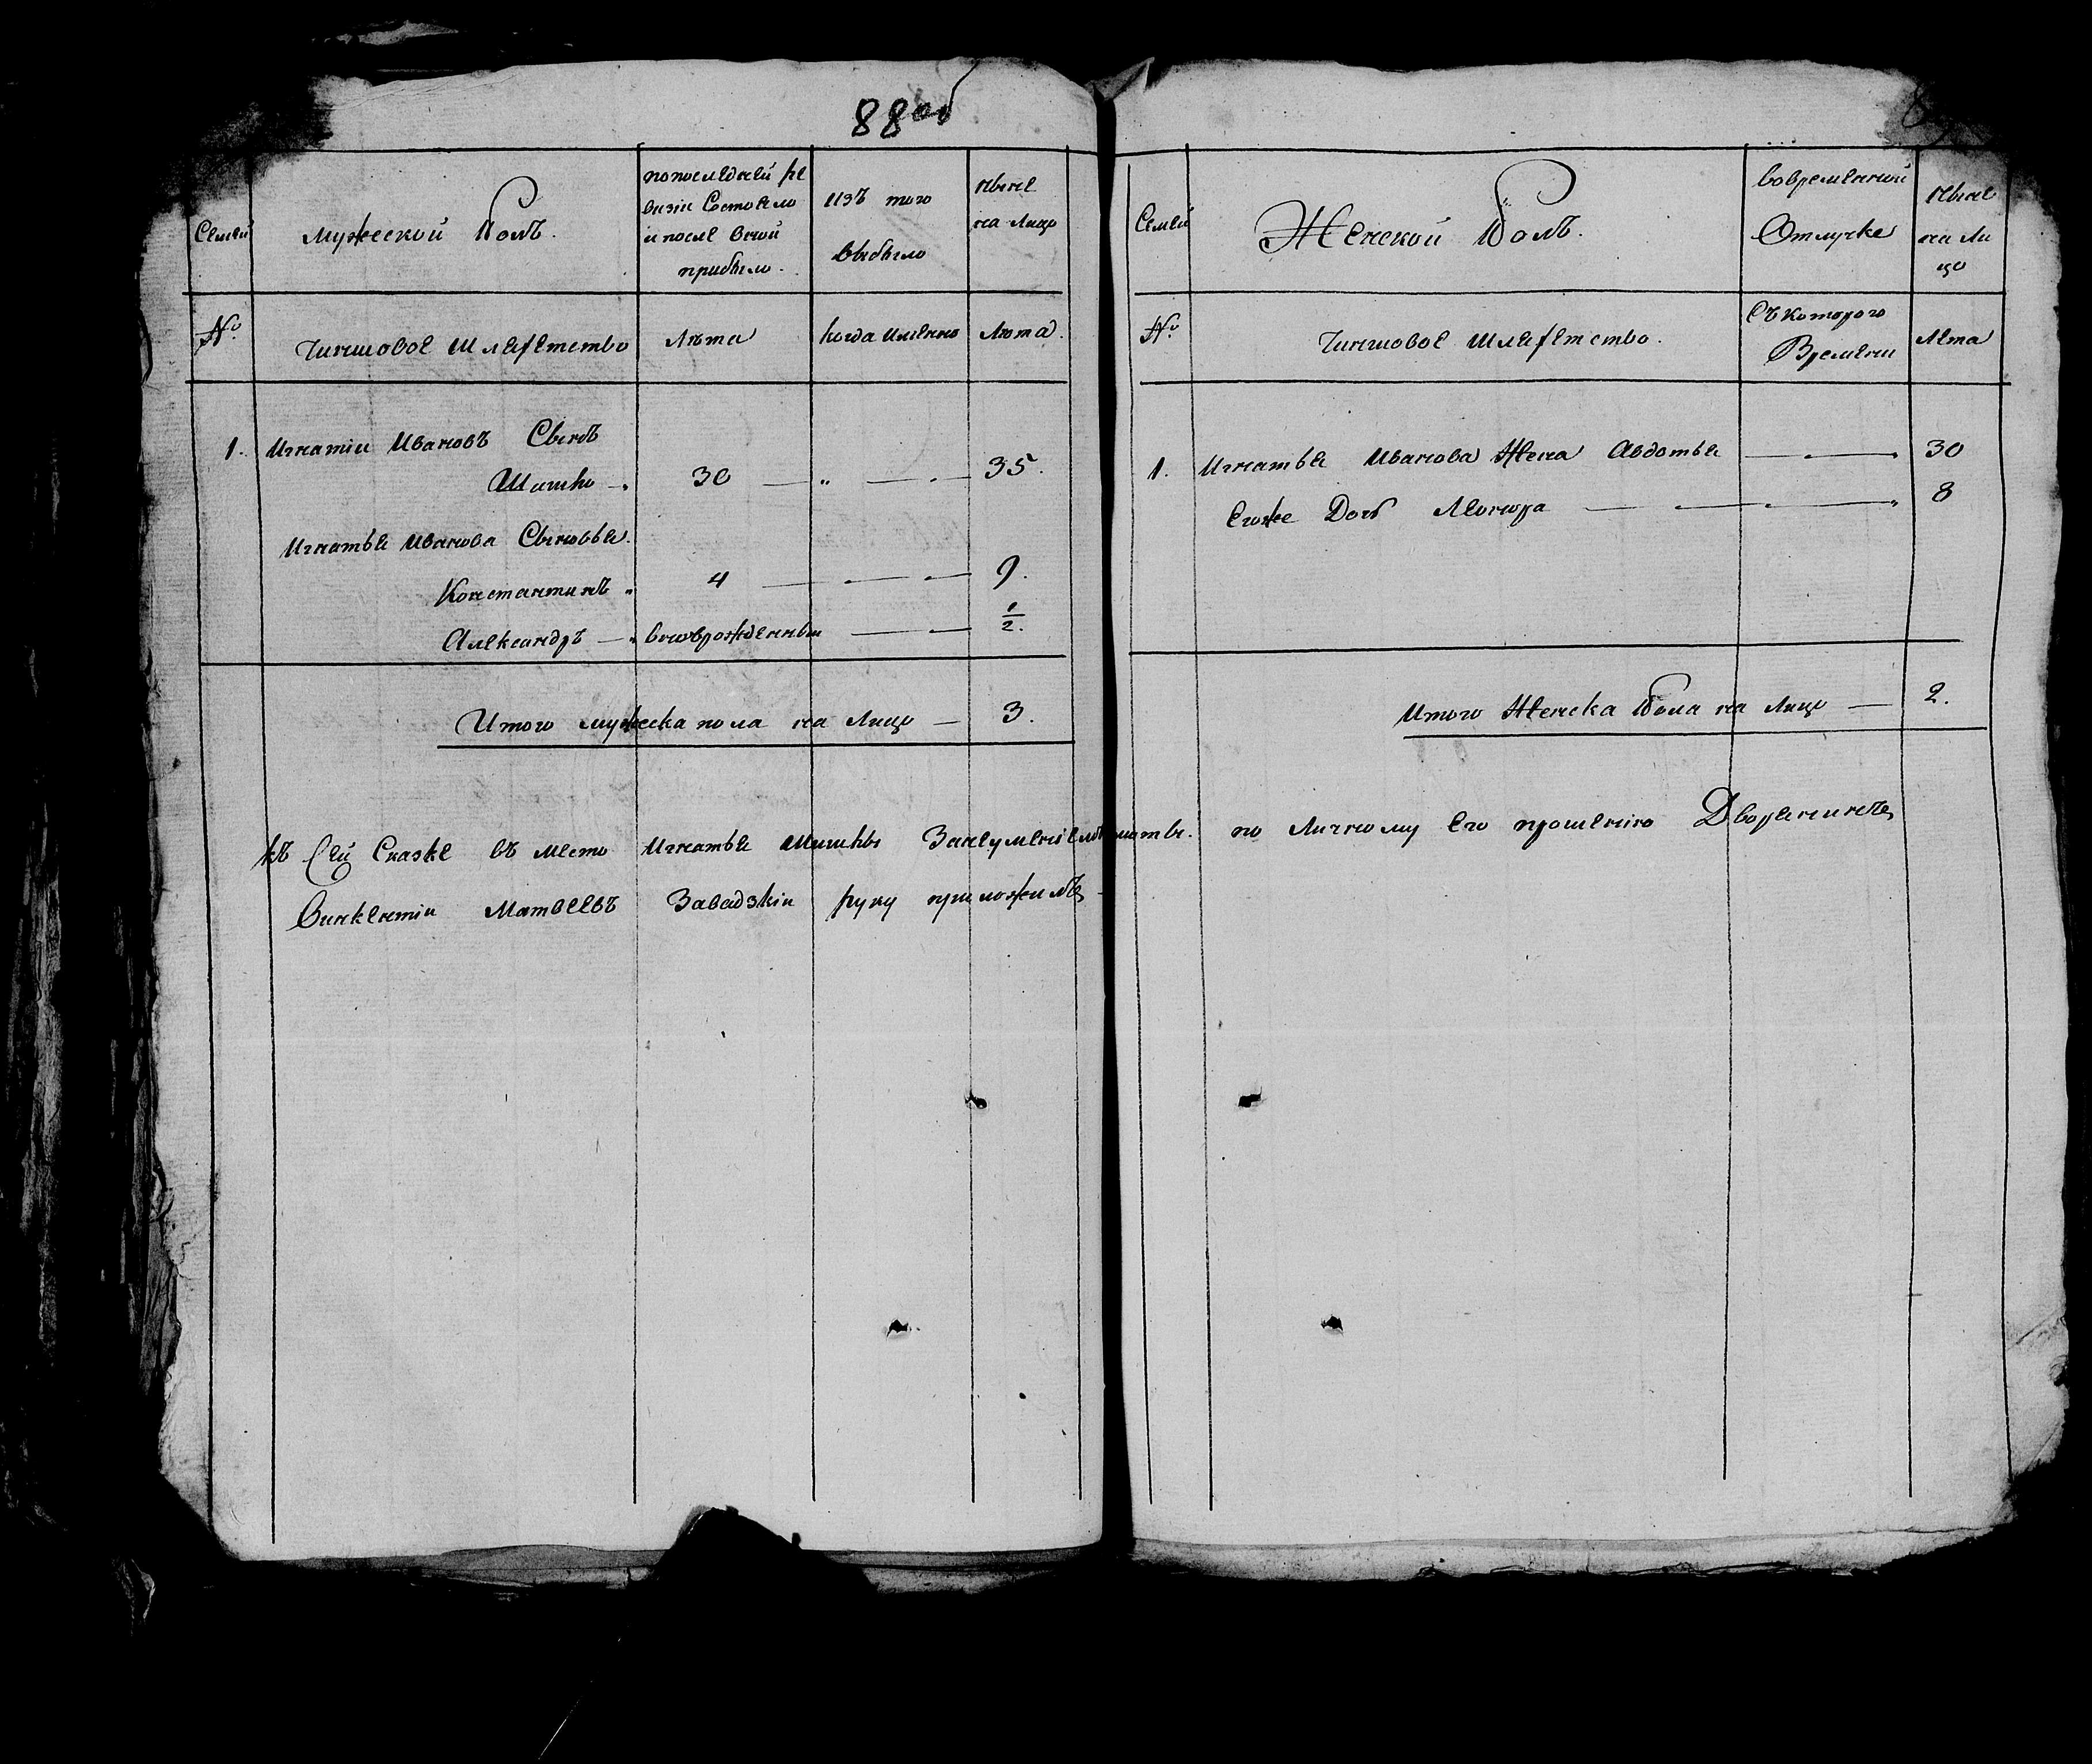 88об
Семьи
Мужеской Полъ.
попоследней ре
визіи Состояло
и после оной
прибыло.
изъ того
выбыло
Ныне
на Лицо
№
Чиншовое Шляхетство
Лѣта
когда имянно
Лѣта
1. Игнатіи Ивановъ Сынъ
Шишко 30 35.
Игнатья Иванова Сыновья.
Константинъ 4 9.
Александръ вновьрожденный 1/2.
Итого мужеска пола на Лицо — 3.
Семьи
Женской Полъ.
вовременной
Отлучке
Ныне
на Ли
цо
№
Чиншовое Шляхетство.
Съкоторого
Времени
Лета
1. Игнатья Иванова Жена Авдотья 30
Егоже Дочь 8
Итого Женска Пола на Лицо — 2.
къ Сей Сказке въ место Игнатья Шишки Занеумениемъ Грамоты. по Личному Его прошенію Дворянинъ
Викентіи Матвеевъ Завадзкіи руку приложилъ